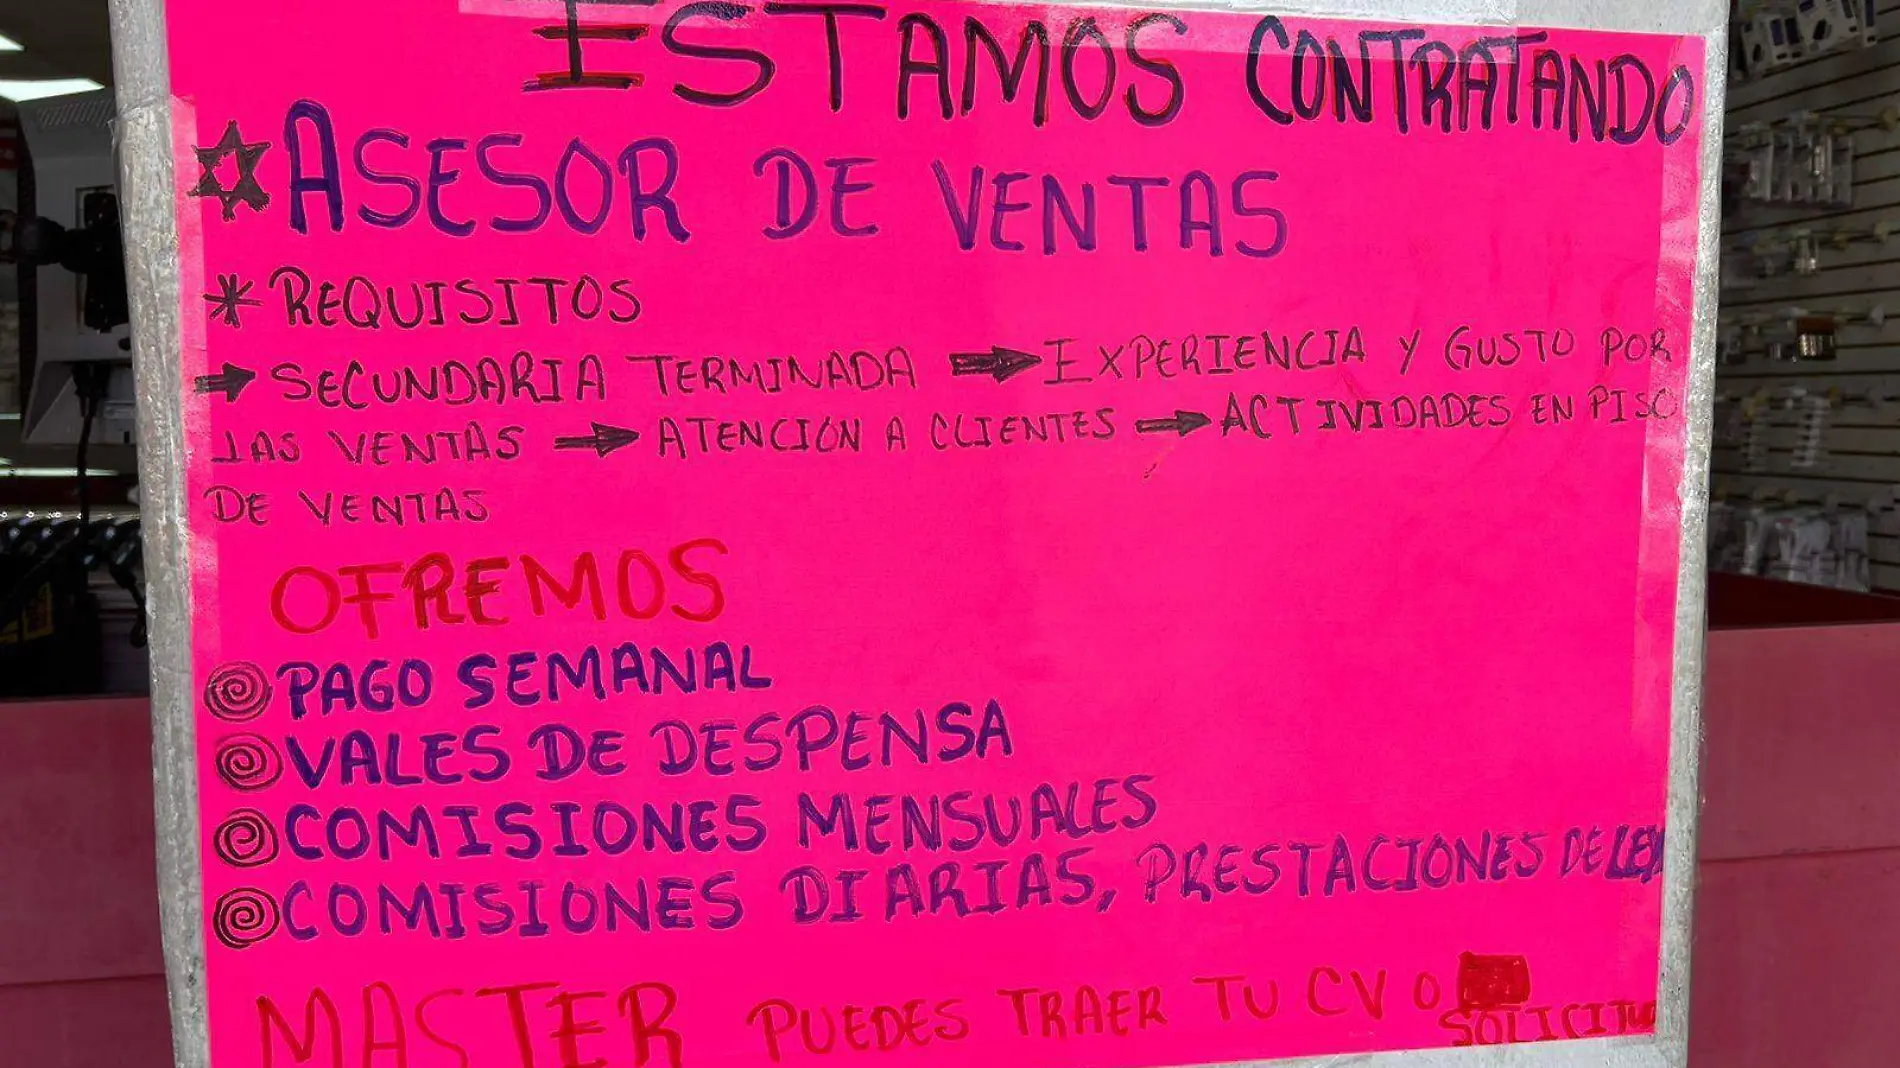 ESTAMOS CONTRATANDO
ASESOR DE VENTAS
* REQUISITOS
→ SECUNDARIA TERMINADA → EXPERIENCIA Y GUSTO POR
LAS VENTAS → ATENCIÓN A CLIENTES → ACTIVIDADES EN PISO
DE VENTAS
OFREMOS
PAGO SEMANAL
VALES DE DESPENSA
COMISIONES MENSUALES
COMISIONES DIARIAS, PRESTACIONES DE LEY
MASTER PUEDES TRAER TU CV O
SOLICITU